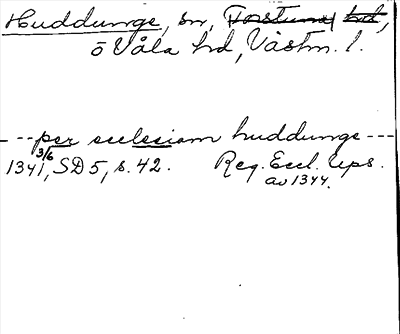 Huddunge, sn, Torstuna hd,
ö Våla hd, Västm. l.
--- per ecclesiam huddunge ---
3/6
1341, SD 5, s. 42. Reg. Eccl. Ups.
av 1344.